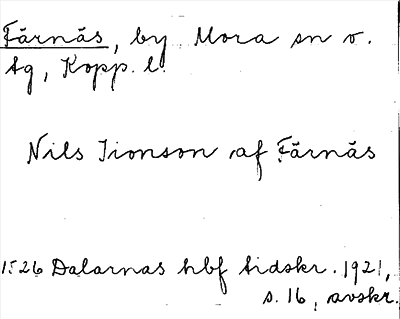 Färnäs, by Mora sn o.
tg, Kopp. l.
Nils Iionson af Färnäs
1526 Dalarnas hbf tidskr. 1921,
s. 16, avskr.